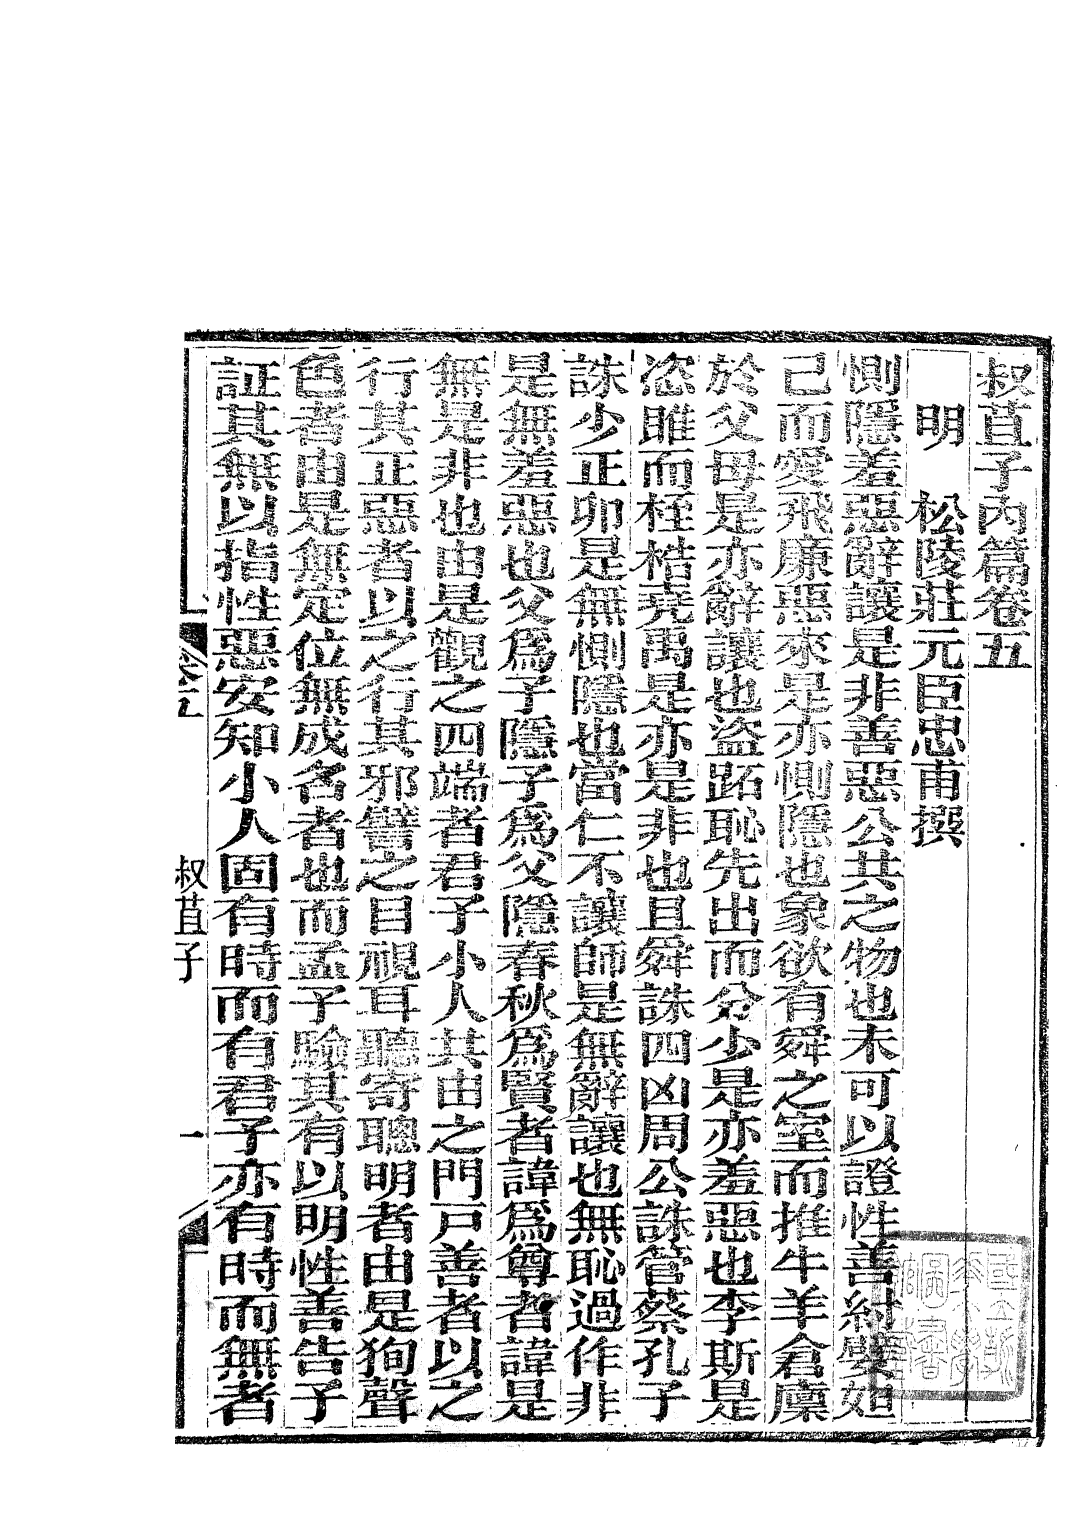 叔苴子內篇卷五
明　松陵莊元臣忠甫撰
惻隱羞惡辭讓是非善惡公共之物也未可以證性善紂嬖妲
己而愛飛廉惡來是亦惻隱也象欲有舜之室而推牛羊倉廩
於父母是亦辭讓也盜跖恥先出而分少是亦羞惡也李斯是
恣睢而桎梏堯禹是亦是非也且舜誅四凶周公誅管蔡孔子
誅少正卯是無惻隱也當仁不讓師是無辭讓也無恥過作非
是無羞惡也父爲子隱子爲父隱春秋爲賢者諱爲尊者諱是
無是非也由是觀之四端者君子小人共由之門戸善者以之
行其正惡者以之行其邪譬之目視耳聽寄聰明者由是狥聲
色者由是無定位無成名者也而孟子驗其有以明性善告子
証其無以指性惡安知小人固有時而有君子亦有時而無者
叔苴子
一